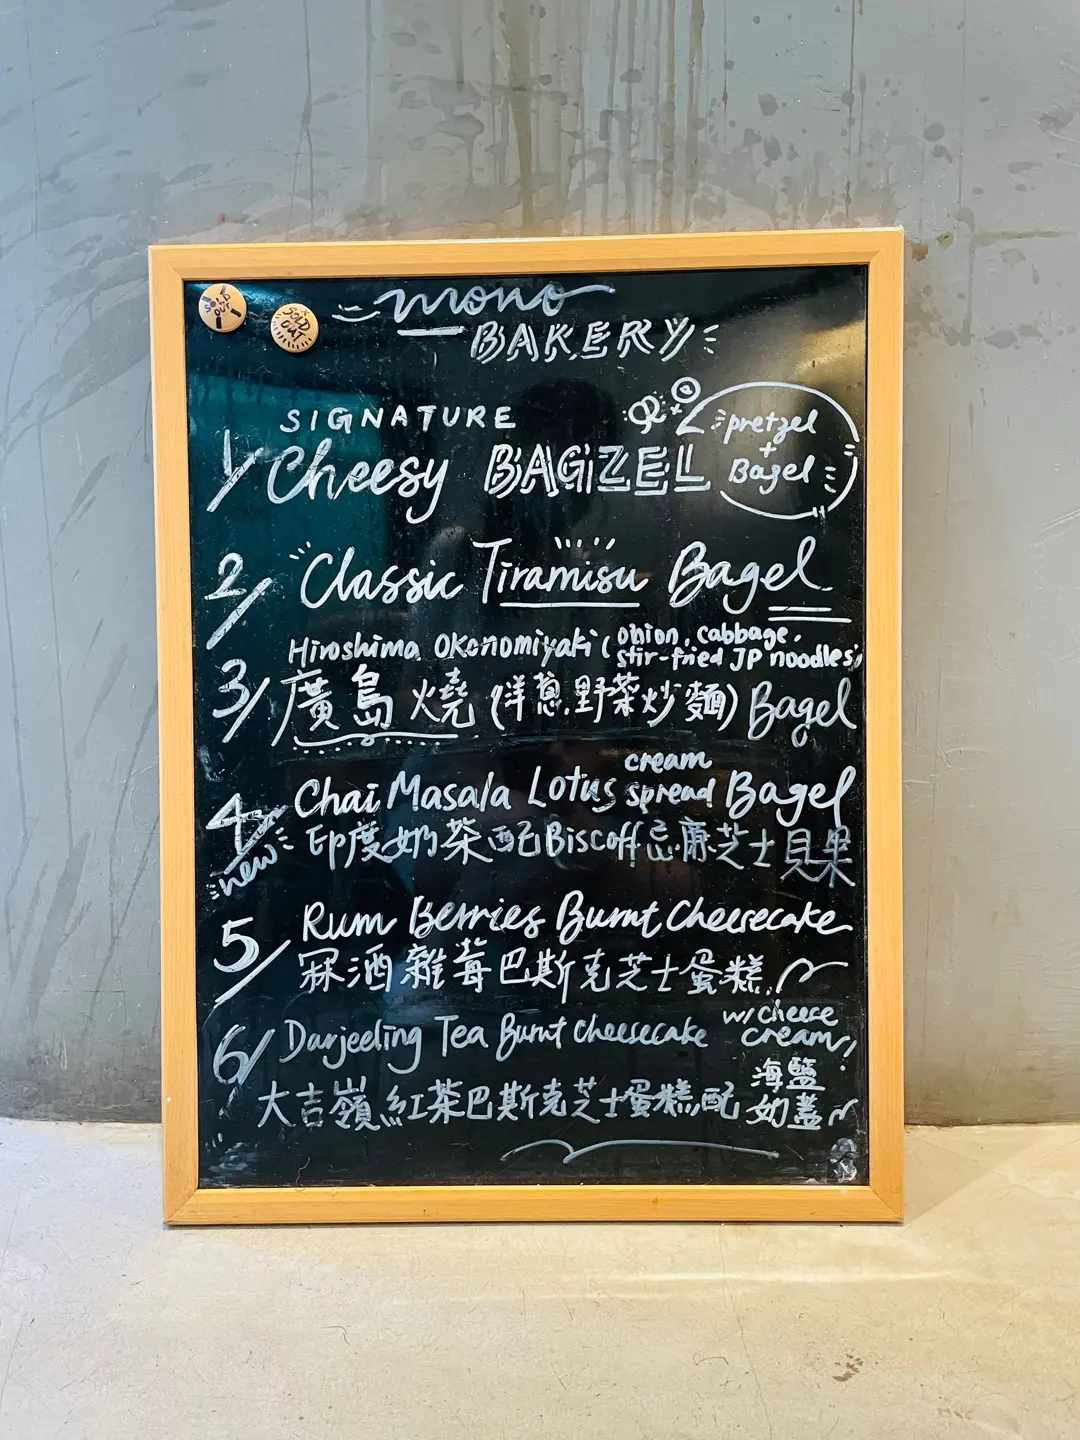 SOLD OUT
SOLD OUT
mono
BAKERY
SIGNATURE
1/ Cheesy BAGZEL
pretzel
+
Bagel
2/ Classic Tiramisu Bagel
Hiroshima Okonomiyaki (onion, cabbage,
stir-fried JP noodles)
3/ 廣島燒 (洋蔥.野菜炒麵) Bagel
4/ Chai Masala Lotus cream spread Bagel
new 印度奶茶配Biscoff忌廉芝士貝果
5/ Rum Berries Burnt Cheesecake
冧酒雜莓巴斯克芝士蛋糕
6/ Darjeeling Tea Burnt cheesecake w/ cheese cream!
大吉嶺紅茶巴斯克芝士蛋糕,配海鹽奶蓋